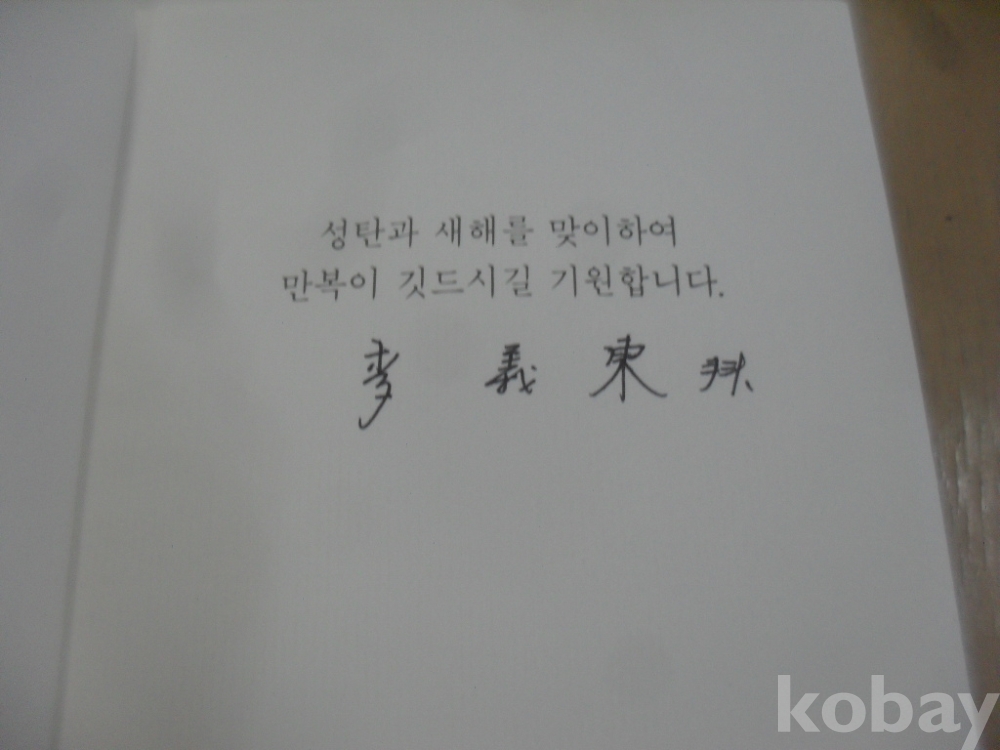 성탄과 새해를 맞이하여
만복이 깃드시길 기원합니다.
李 義 東 拜
kobay